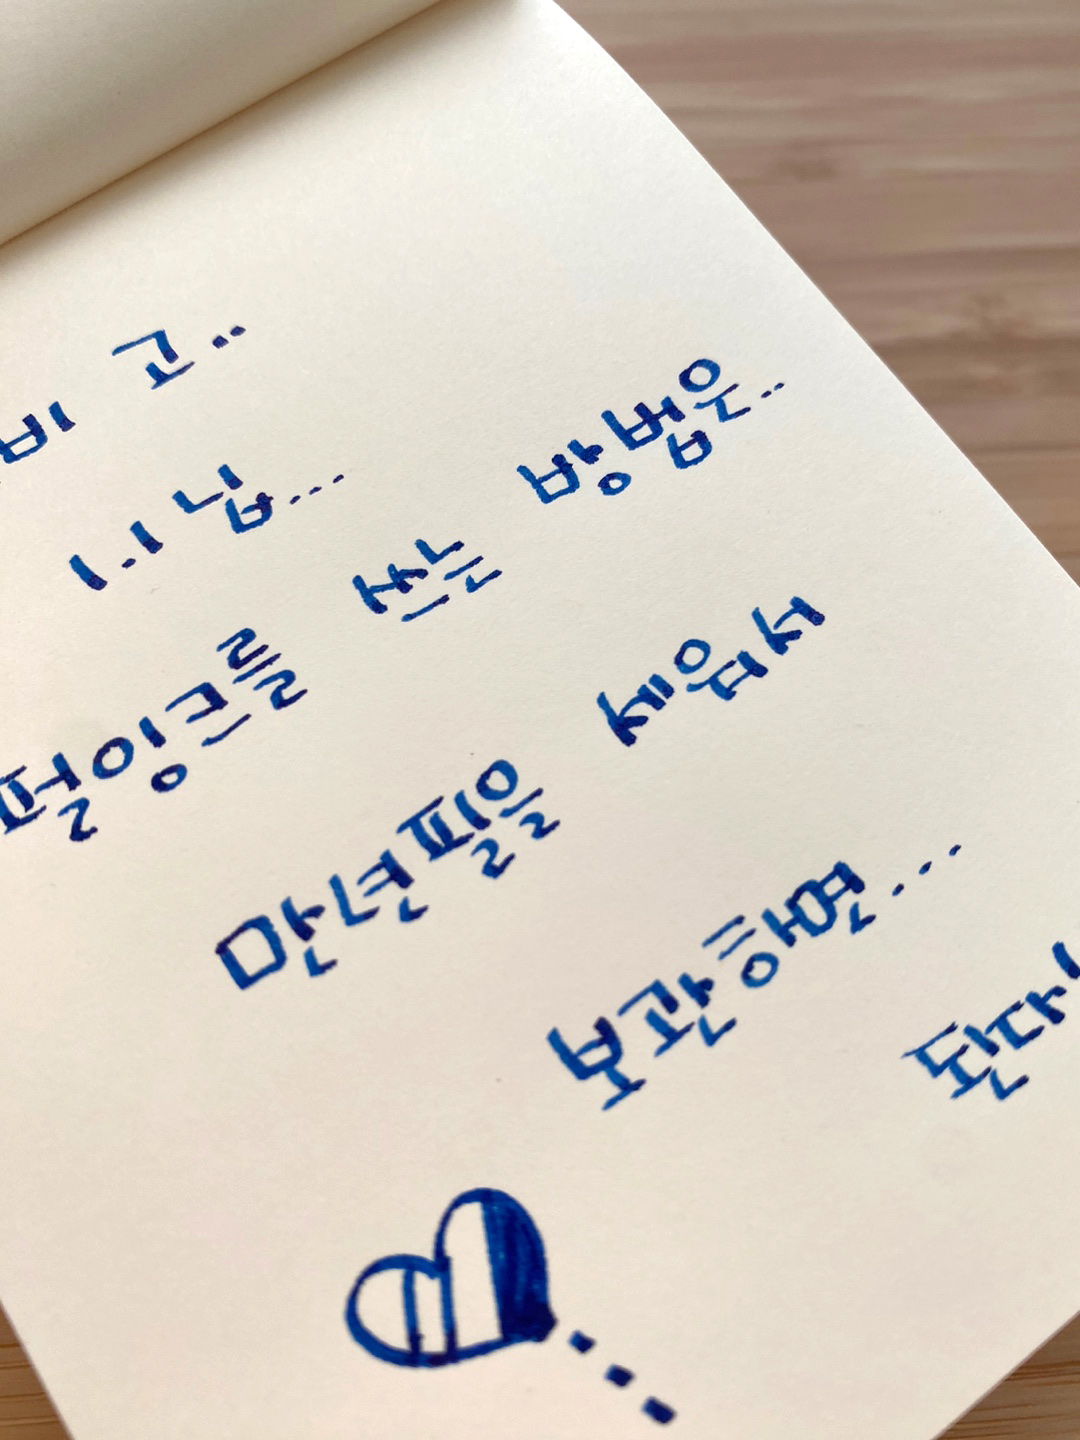 고..
펄잉크를 쓰는 방법은..
만년필을 세워서
보관하면... 된다